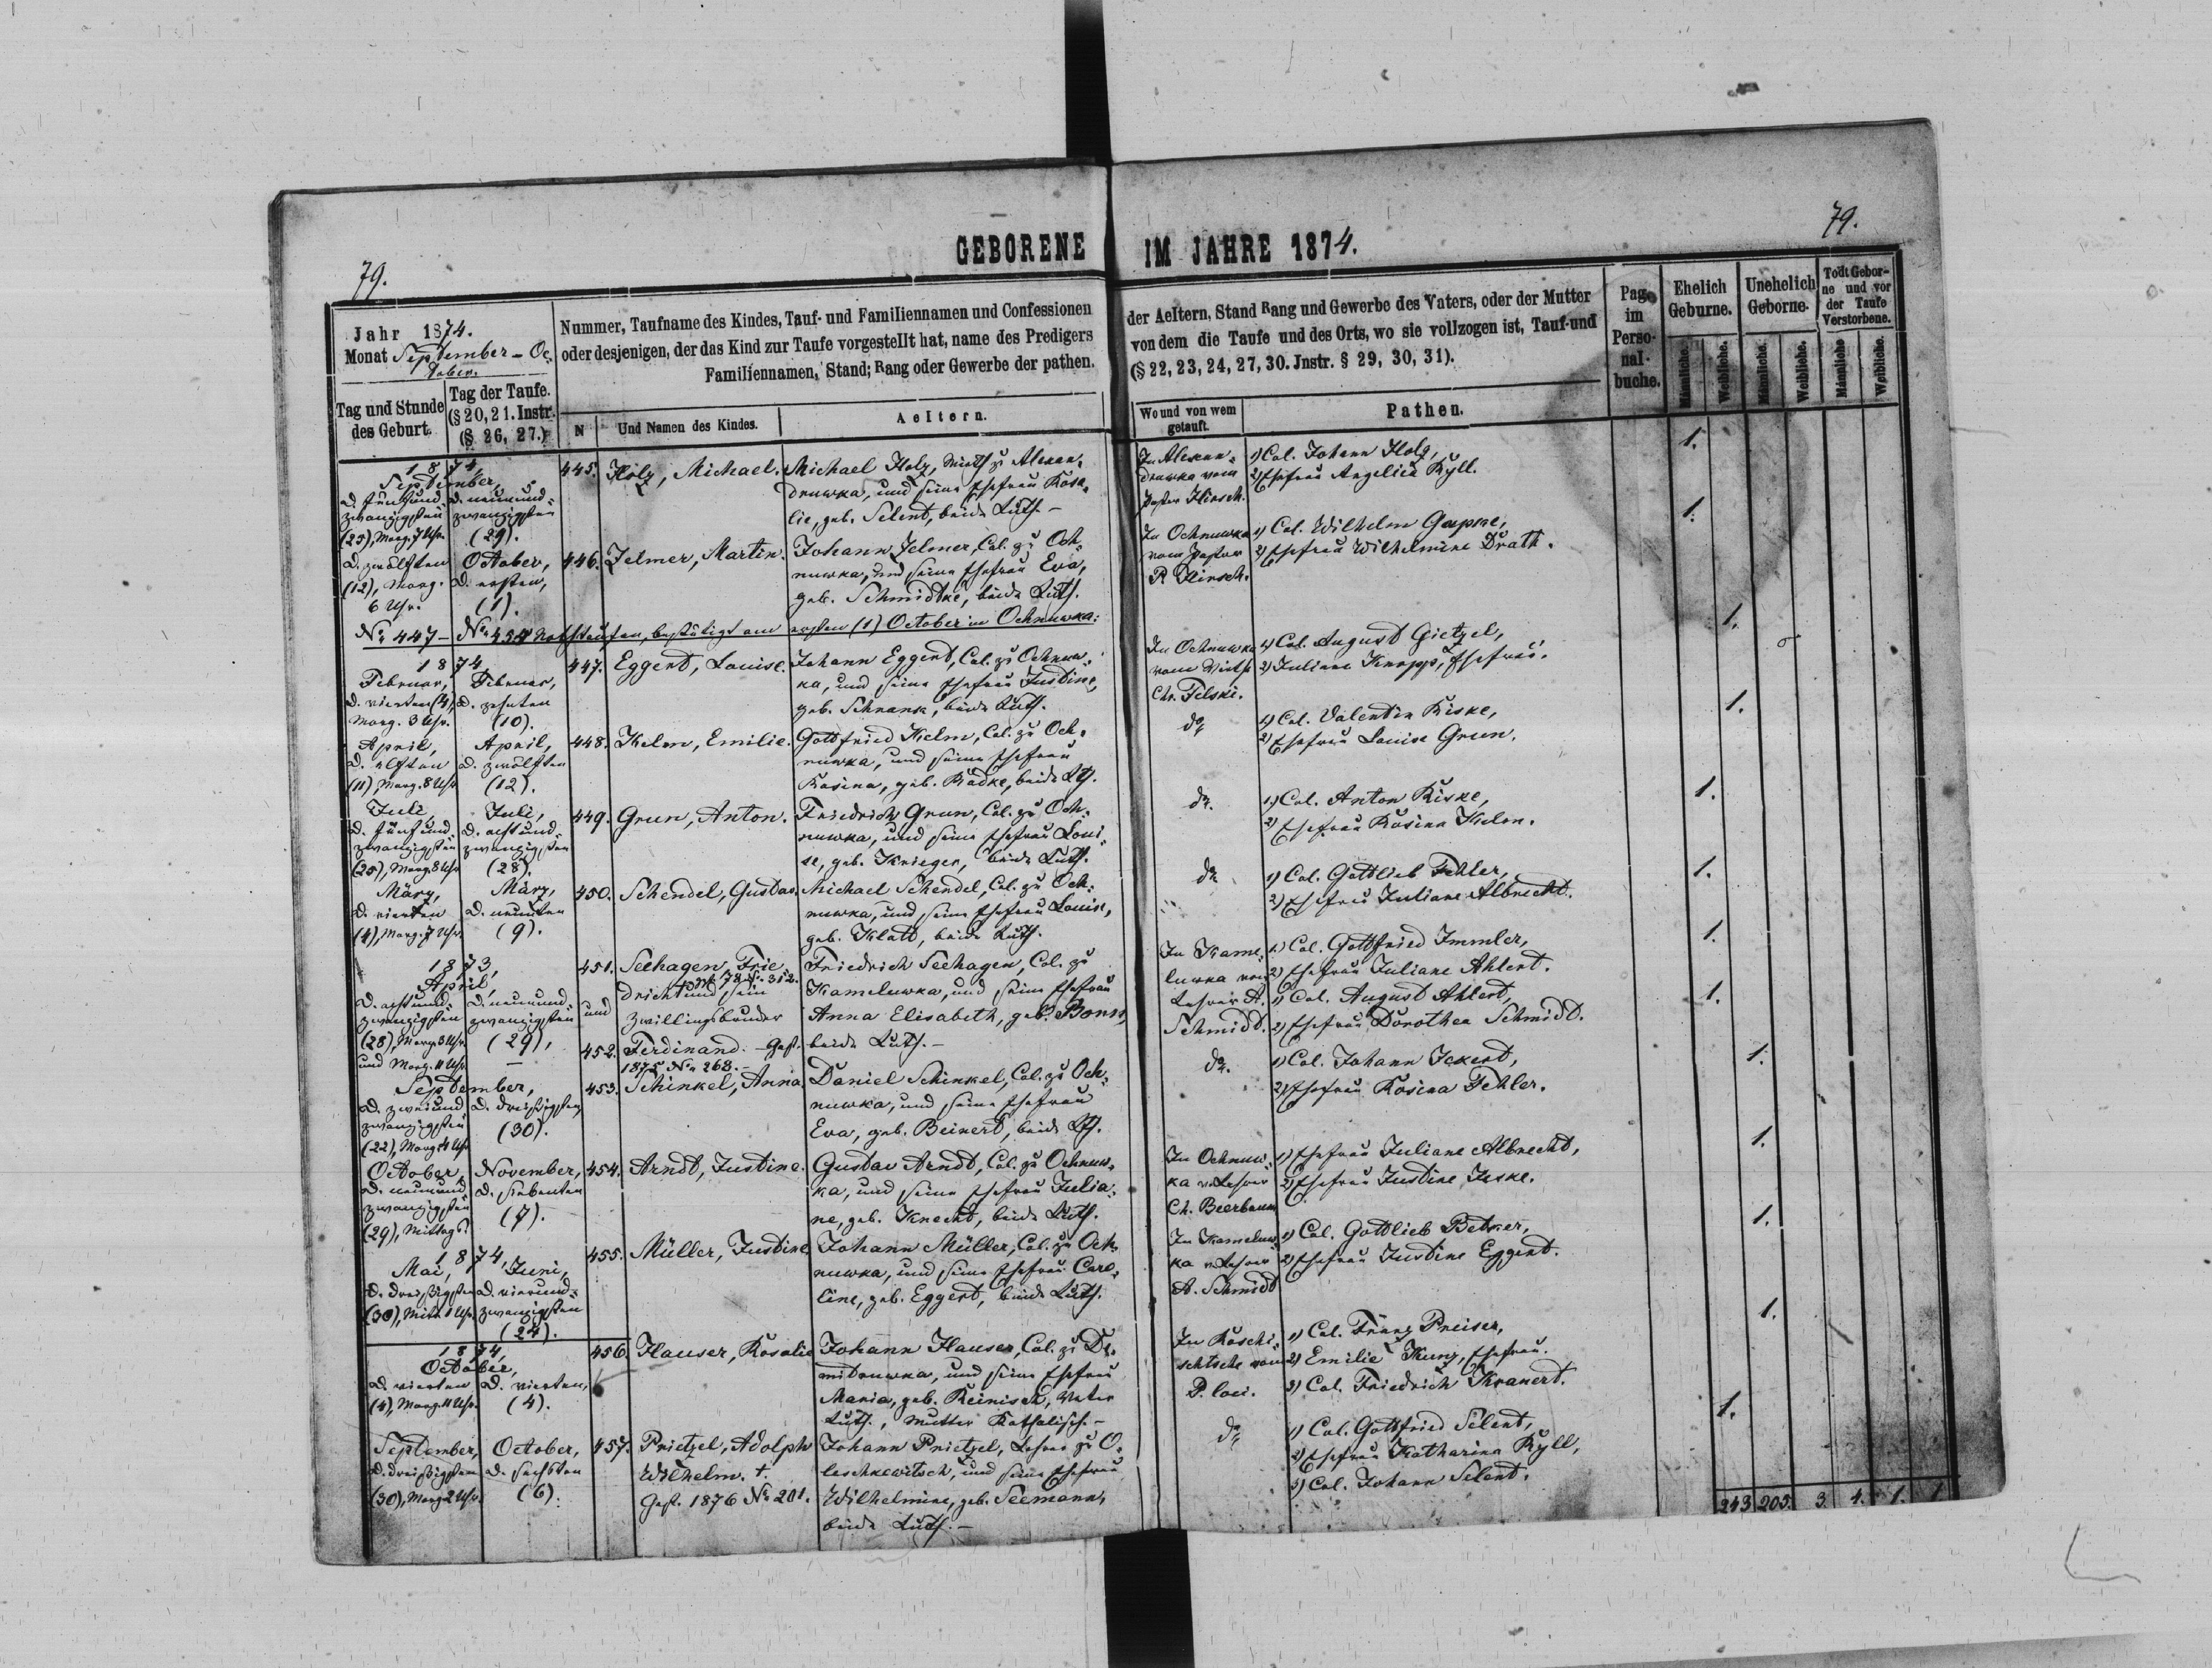 79.
GEBORENE IM JAHRE 1874.
79.
Jahr 1874.
Monat September-Oc-
tober.
Tag und Stunde
des Geburt.
Tag der Taufe.
(§ 20, 21. Instr.
(§ 26, 27.)
Nummer, Taufname des Kindes, Tauf- und Familiennamen und Confessionen
oder desjenigen, der das Kind zur Taufe vorgestellt hat, name des Predigers
Familiennamen, Stand; Rang oder Gewerbe der pathen.
N
Und Namen des Kindes.
Aeltern.
der Aeltern, Stand Rang und Gewerbe des Vaters, oder der Mutter
von dem die Taufe und des Orts, wo sie vollzogen ist, Tauf-und
(§ 22, 23, 24, 27, 30. Jnstr. § 29, 30, 31).
Wo und von wem
getauft.
Pathen.
Pag.
im
Perso-
nal-
buche.
Ehelich
Geburne.
Unehelich
Geborne.
Todt Gebor-
ne und vor
der Taufe
Verstorbene.
Männliche.
Weibliche.
Männliche.
Weibliche.
Männliche
Weibliche.
1874,
September,
d. fünfund-
zwanzigsten
(25), Morg. 7 Uhr.
d. neunund-
zwanzigsten
(29).
445.
Holz, Michael.
Michael Holz, Wirth zu Alexan-
druwka, und seine Ehefrau Rosa-
lie, geb. Selent, beide Luth.-
In Alexan-
druwka vom
Pastor Hirsch.
1) Col. Johann Holz,
2) Ehefrau Angelica Ryll.
1.
d. zwölften
(12), Morg.
6 Uhr.
October,
d. ersten,
(1).
446.
Zelmer, Martin.
Johann Zelmer, Col. zu Och-
nuwka, und seine Ehefrau Eva,
geb. Schmidtke, beide Luth.
In Ochnuwka
vom Pastor
P. Hirsch.
1) Col. Wilhelm Gaprie,
2) Ehefrau Wilhelmine Drath.
1.
No 447- No 454 Nothtaufen, bestätigt am ersten (1) October in Ochnuwka:
1874,
Februar,
d. vierten (4),
Morg. 3 Uhr.
Februar,
d. zehnten
(10).
447.
Eggert, Louise.
Johann Eggert, Col. zu Ochnuw-
ka, und seine Ehefrau Justine,
geb. Schrank, beide Luth.
In Ochnuwka
vom Wirth
Chr. Felski.
1) Col. August Gietzel,
2) Juliane Knopp, Ehefrau.
1.
April,
d. elften
(11) Morg. 8 Uhr
April,
d. zwölften
(12).
448.
Kelm, Emilie.
Gottfried Kelm, Col. zu Och-
nuwka, und seine Ehefrau
Rosina, geb. Radke, beide Lth.
do
1) Col. Valentin Riske,
2) Ehefrau Louise Grun.
1.
Juli,
d. fünfund-
zwanzigsten
(25), Morg. 8 Uhr
Juli,
d. achtund-
zwanzigsten
(28).
449.
Grun, Anton.
Friedrich Grun, Col. zu Och-
nuwka, und seine Ehefrau Loui-
se, geb. Krieger, beide Luth.
do.
1) Col. Anton Riske,
2) Ehefrau Rosina Kelm.
1.
März,
d. vierten
(4), Morg. 7 Uhr.
März,
d. neunten
(9).
450.
Schendel, Gustav.
Michael Schendel, Col. zu Och-
nuwka, und seine Ehefrau Louise,
geb. Klatt, beide Luth.
do
1) Col. Gottlieb Fehler,
2) Ehefrau Juliane Albrecht.
1.
1873,
April,
d. achtund-
zwanzigsten
(28), Morg. 3 Uhr
und Morg. 11 Uhr
d. neunund-
zwanzigsten
(29),
451.
und
452.
Seehagen, Frie-
78 No 312.
drich und sein
Zwillingsbruder
Ferdinand. - Gest.
1875 No 268.-
Friedrich Seehagen, Col. zu
Kameluwka, und seine Ehefrau
Anna Elisabeth, geb. Bonn,
beide Luth.-
In Kame-
luwka vom
Lehrer A.
Schmidt.
1) Col. Gottfried Immler,
2) Ehefrau Juliane Ahlert.
1) Col. August Ahlert,
2) Ehefrau Dorothea Schmidt.
1.
1.
September,
d. zweiund-
zwanzigsten
(22), Morg. 4 Uhr
d. dreißigsten
(30).
453.
Schinkel, Anna.
Daniel Schinkel, Col. zu Och-
nuwka, und seine Ehefrau
Eva, geb. Beinert, beide Lth.
do.
1) Col. Johann Jekert,
2) Ehefrau Rosina Fehler.
1.
October,
d. neunund-
zwanzigsten
(29), Mittags.
November,
d. siebenten
(7).
454.
Arndt, Justine.
Gustav Arndt, Col. zu Ochnuw-
ka, und seine Ehefrau Julia-
ne, geb. Knecht, beide Luth.
In Ochnuw-
ka v. Lehrer
Ch. Beerbaum
1) Ehefrau Juliane Albrecht,
2) Ehefrau Justine Jeske.
1.
1874,
Mai,
d. dreißigsten
(30), Mitt. 1 Uhr.
Juni,
d. vierund-
zwanzigsten
(24).
455.
Müller, Justine
Johann Müller, Col. zu Och-
nuwka, und seine Ehefrau Caro-
line, geb. Eggert, beide Luth.
In Kameluw-
ka v. Lehrer
A. Schmidt
1) Col. Gottlieb Betker,
2) Ehefrau Justine Eggert.
1.
1874,
October,
d. vierten
(4), Morg. 11 Uhr.
d. vierten,
(4).
456.
Hauser, Rosalie
Johann Hauser, Col. zu Dr.
mitruwka, und seine Ehefrau
Maria, geb. Reinisch, Vater
Luth., Mutter Katholisch.-
In Roschi-
schtsche vom
P. loci.
1) Col. Franz Preiser,
2) Emilie Kunz, Ehefrau.
3) Col. Friedrich Kranert.
1.
September,
d. dreißigsten
(30), Morg. 2 Uhr.
October,
d. sechsten
(6).
457.
Prietzel, Adolph
Wilhelm. †.
Gest. 1876 No 201.
Johann Prietzel, Lehrer zu O-
leschkewitsch, und seine Ehefrau
Wilhelmine, geb. Seemann,
beide Luth.-
do
1) Col. Gottfried Selent,
2) Ehefrau Katharina Ryll,
3) Col. Johann Selent.
1.
243 205. 3. 4. 1. 1